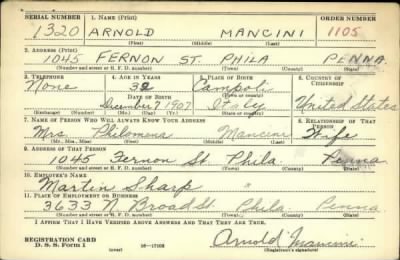 SERIAL NUMBER 1. NAME (Print) ORDER NUMBER
1320 ARNOLD MANCINI 1105
(First) (Middle) (Last)
2. ADDRESS (Print)
1045 FERNON ST. PHILA PENNA
(Number and street or R. F. D. number) (Town) (County) (State)
3. TELEPHONE 4. AGE IN YEARS 5. PLACE OF BIRTH 6. COUNTRY OF CITIZENSHIP
None 32 Campoli
DATE OF BIRTH (Town or county)
December 7 1907 Italy United States
(Exchange) (Number) (Mo.) (Day) (Yr.) (State or country)
7. NAME OF PERSON WHO WILL ALWAYS KNOW YOUR ADDRESS 8. RELATIONSHIP OF THAT PERSON
Mrs Philomena Mancini Wife
(Mr., Mrs., Miss) (First) (Middle) (Last)
9. ADDRESS OF THAT PERSON
1045 Fernon St. Phila. Penna
(Number and street or R. F. D. number) (Town) (County) (State)
10. EMPLOYER'S NAME
Martin Sharp "
11. PLACE OF EMPLOYMENT OR BUSINESS
3633 N. Broad St. Phila. Penna
(Number and street or R. F. D. number) (Town) (County) (State)
I AFFIRM THAT I HAVE VERIFIED ABOVE ANSWERS AND THAT THEY ARE TRUE.
REGISTRATION CARD
D. S. S. Form 1 (over) 16—17105 Arnold Mancini
(Registrant's signature)